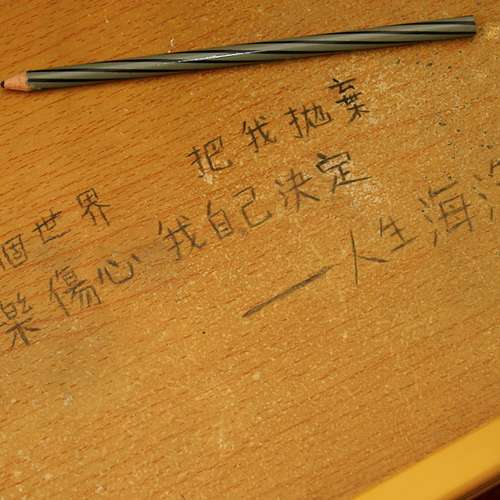 個世界 把我拋棄
樂傷心 我自己決定
—人生海海